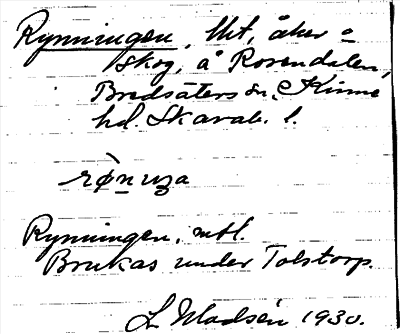 Rynningen, lht, åker o
skog, å Rosendalen,
Bredsäters sn, Kinne
hd. Skarab. l.
rø̀nuŋa
Rynningen, mtl.
Brukas under Tolstorp.
L Madsén 1930.